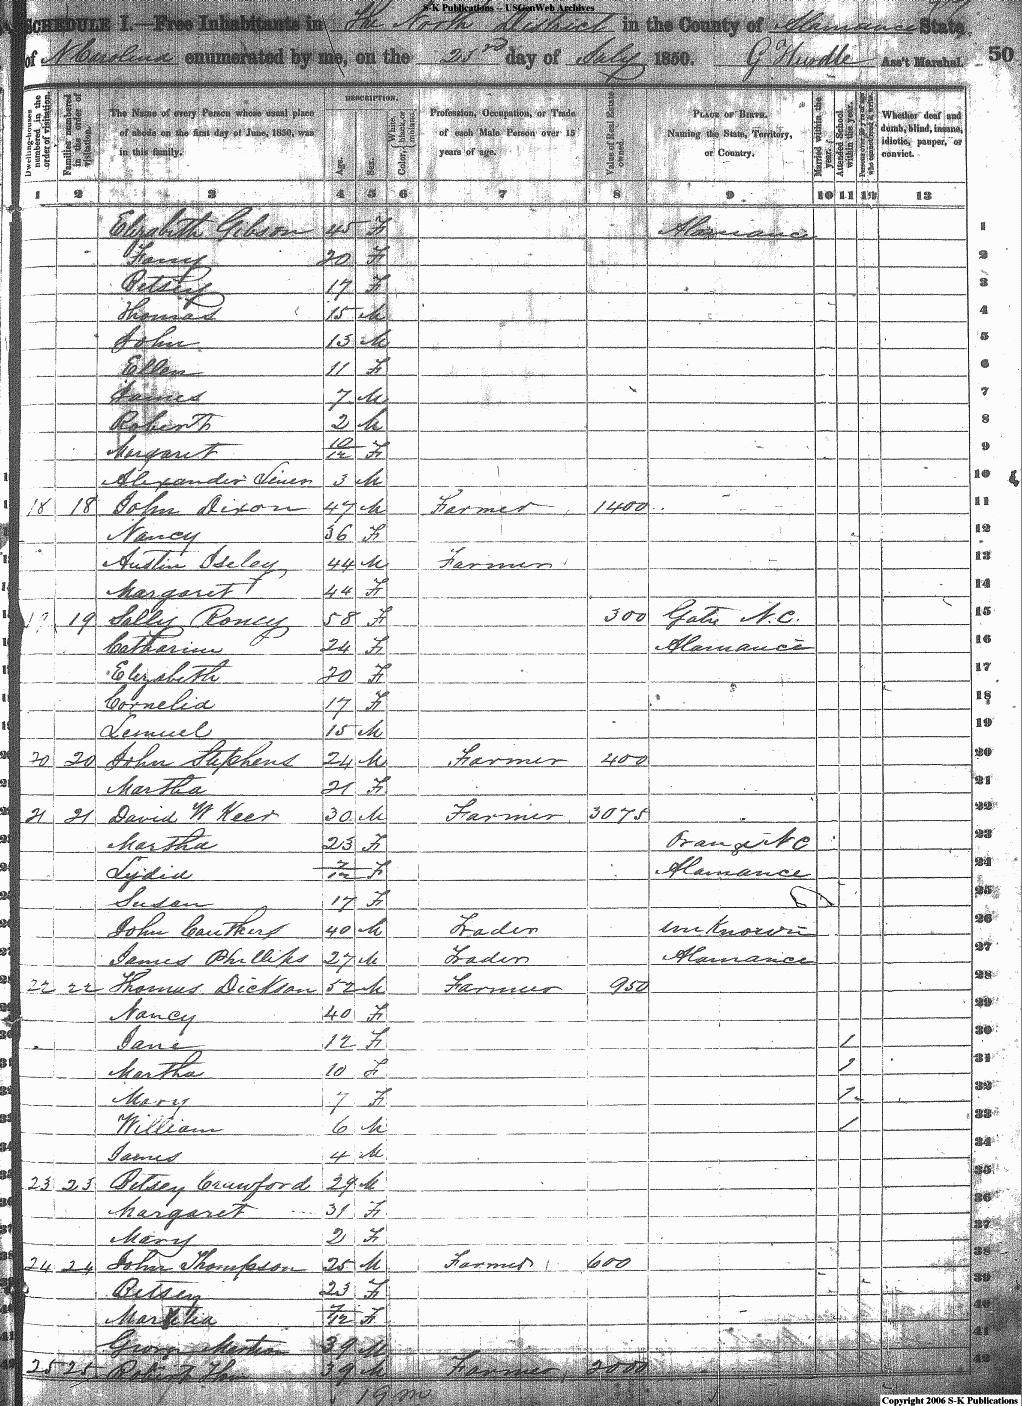 S-K Publications – USGenWeb Archives
SCHEDULE I.—Free Inhabitants in The North District in the County of Alamance State
of N Carolina enumerated by me, on the 25rd day of July 1850. G Hurdle Ass't Marshal. 50
Dwelling-houses numbered in the order of visitation.
Families numbered in the order of visitation.
The Name of every Person whose usual place of abode on the first day of June, 1850, was in this family.
DESCRIPTION.
Age.
Sex.
White, black, or mulatto.
Color,
Profession, Occupation, or Trade of each Male Person over 15 years of age.
Value of Real Estate owned.
PLACE OF BIRTH.
Naming the State, Territory, or Country.
Married within the year.
Attended School within the year.
Whether deaf and dumb, blind, insane, idiotic, pauper, or convict.
1 2 3 4 5 6 7 8 9 10 11 12 13
Elizabith Gibson 45 F Alamance 1
Fanny 20 F 2
Betsey 17 F 3
Thomas 15 M 4
John 13 M 5
Ellen 11 F 6
James 7 M 7
Roberth 2 M 8
Margaret 10/12 F 9
Alexander 3 M 10
18 18 John Dixon 47 M Farmer 1400 11
Nancy 36 F 12
Austin Iseley 44 M Farmer 13
Margaret 44 F 14
19 19 Sally Roney 58 F 300 Gate N.C. 15
Catharine 24 F Alamance 16
Elizabeth 20 F 17
Cornelia 17 F 18
Lemuel 15 M 19
20 20 John Stephens 24 M Farmer 400 20
Martha 21 F 21
21 21 David W Keer 30 M Farmer 3075 22
Martha 23 F Orange N C 23
Lydia 7/12 F Alamance 24
Susan 17 F 25
John Cauthers 40 M Trader unKnown 26
James Phillips 27 M Trader Alamance 27
22 22 Thomas Dickson 52 M Farmer 950 28
Nancy 40 F 29
Jane 12 F 1 30
Martha 10 F 1 31
Mary 7 F 1 32
William 6 M 1 33
James 4 M 34
23 23 Betsey Crawford 29 M 35
Margaret 31 F 36
Mary 2 F 37
24 24 John Thompson 25 M Farmer 600 38
Betsey 23 F 39
7/12 F 40
George Martin 39 M 41
25 25 Robert 39 M Farmer 2000 42
19 m
Copyright 2006 S-K Publications